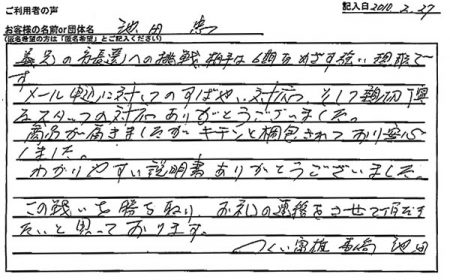 ご利用者の声
記入日 2010. 2. 27
お客様の名前or団体名 池田
(匿名希望の方は「匿名希望」とご記入ください)
義兄の市長選への挑戦、相手は6期をめざす強い現職で
す
メール申込に対してのすばやい対応、そして親切丁寧
なスタッフの対応ありがとうございました。
商品が届きましたがキチンと梱包されており安心
しました。
わかりやすい説明書ありがとうございました。
この戦いを勝ち取り、お礼の連絡をさせて頂き
たいと思っております。
池田